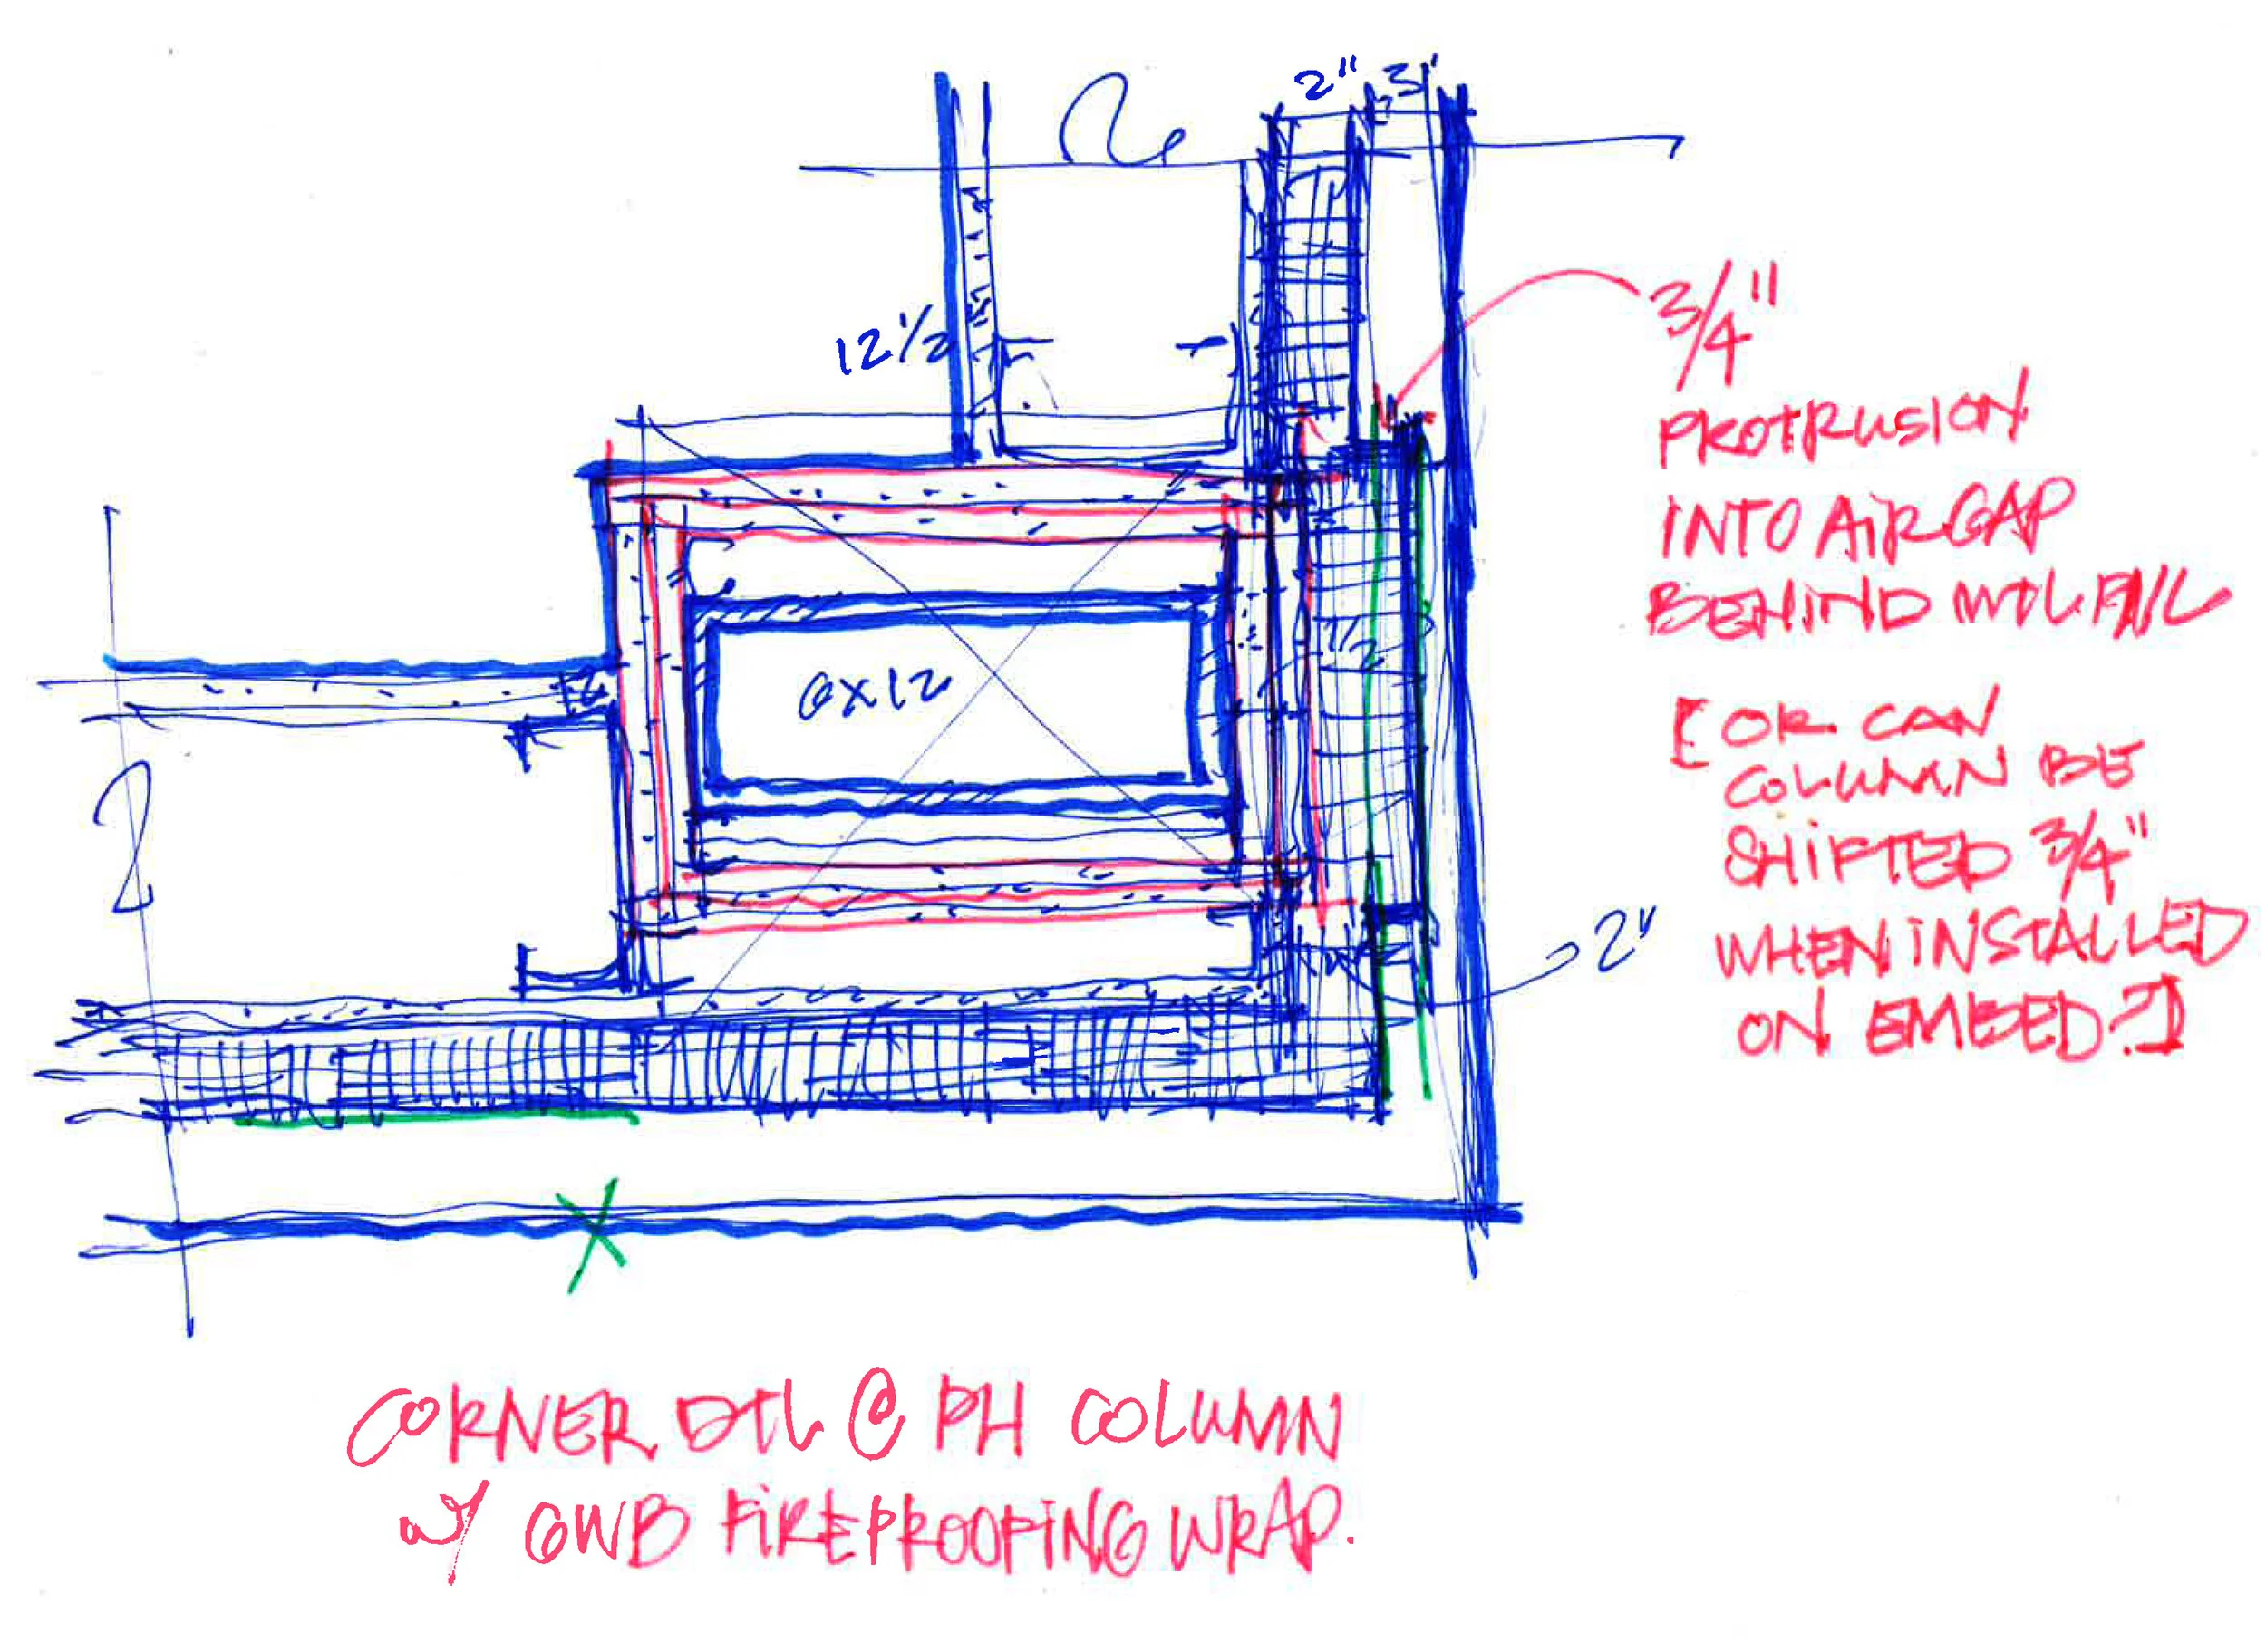 2" 3"
12 1/2
3/4"
PROTRUSION
INTO AIR GAP
BEHIND MTL PNL
[OR CAN
COLUMN BE
SHIFTED 3/4"
WHEN INSTALLED
ON EMBED?]
6X12
1/2
2"
CORNER DTL @ PH COLUMN
W/ GWB FIREPROOFING WRAP.